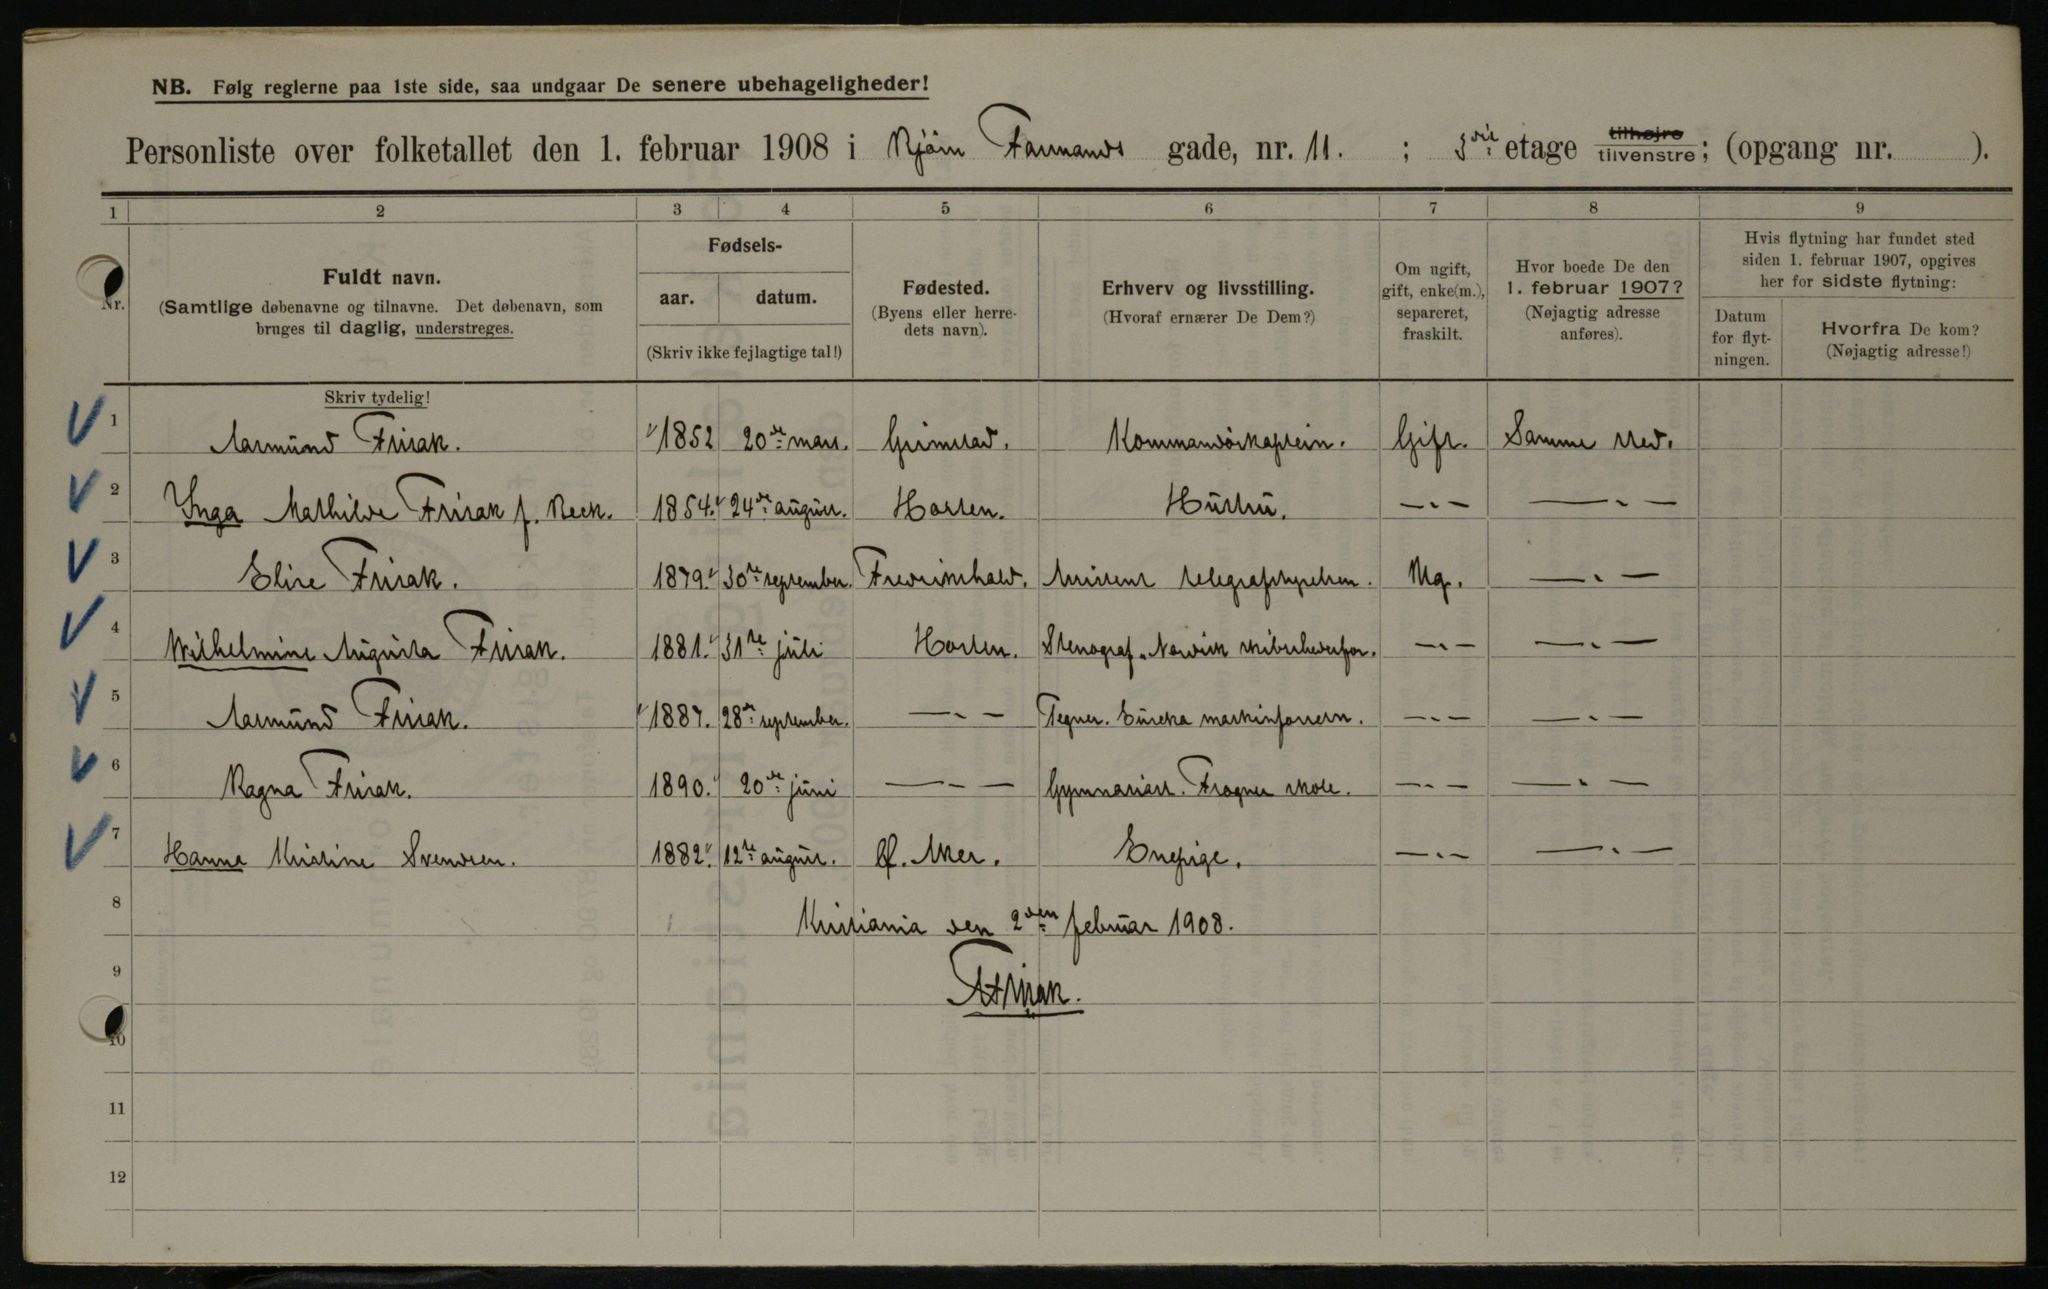 NB. Følg reglerne paa 1ste side, saa undgaar De senere ubehageligheder!
Personliste over folketallet den 1. februar 1908 i Bjørn Farmands gade, nr. 11. ; 3die etage tilhøjre tilvenstre; (opgang nr. ).
1 2 3 4 5 6 7 8 9
Nr.
Fuldt navn.
(Samtlige døbenavne og tilnavne. Det døbenavn, som
bruges til daglig, understreges.
Skriv tydelig!
Fødsels-
aar. datum.
(Skriv ikke fejlagtige tal!)
Fødested.
(Byens eller herre-
dets navn).
Erhverv og livsstilling.
(Hvoraf ernærer De Dem?)
Om ugift,
gift, enke(m.),
separeret,
fraskilt.
Hvor boede De den
1. februar 1907?
(Nøjagtig adresse
anføres).
Hvis flytning har fundet sted
siden 1. februar 1907, opgives
her for sidste flytning:
Datum
for flyt-
ningen.
Hvorfra De kom?
(Nøjagtig adresse!)
1 Aasmund Frisak. 1852 20de mars. Grimstad. Kommandørkaptein. Gift. Samme sted.
2 Inga Mathilde Frisak f. Beck. 1854. 24de august. Horten. Hustru. —„— —„—
3 Elise Frisak. 1879. 30te september. Fredrikshald. Assistent telegrafstyrelsen. Ug. —„—
4 Wilhelmine Augusta Frisak. 1881. 31te juli Horten. Stenograf. Norsk skibshederfor. —„— —„—
5 Aasmund Frisak. 1887. 28de september. —„— Tegner. Eureka maskinforretn. —„— —„—
6 Ragna Frisak. 1890. 20de juni —„— Gymnasiast. Frogner skole. —„— —„—
7 Hanna Kristine Svendsen. 1882. 12te august. Ø. Aker. Enepige. —„— —„—
8 Kristiania den 2den februar 1908.
9 AFrisak.
10
11
12